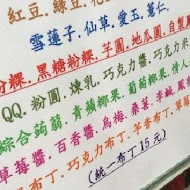 紅豆.綠豆.花
雪蓮子.仙草.愛玉.薏仁
粉粿.黑糖粉粿.芋圓.地瓜圓.自製
QQ.粉圓.煉乳.巧克力醬.巧克力
綜合蒟蒻.青蘋椰果.葡萄椰果.情人
草莓醬.百香醬.烏梅.桑葚.李鹹.鳳
布丁.巧克力布丁.芋香布丁.草
(統一布丁15元)